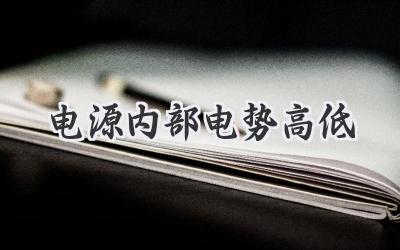 电源内部电势高低